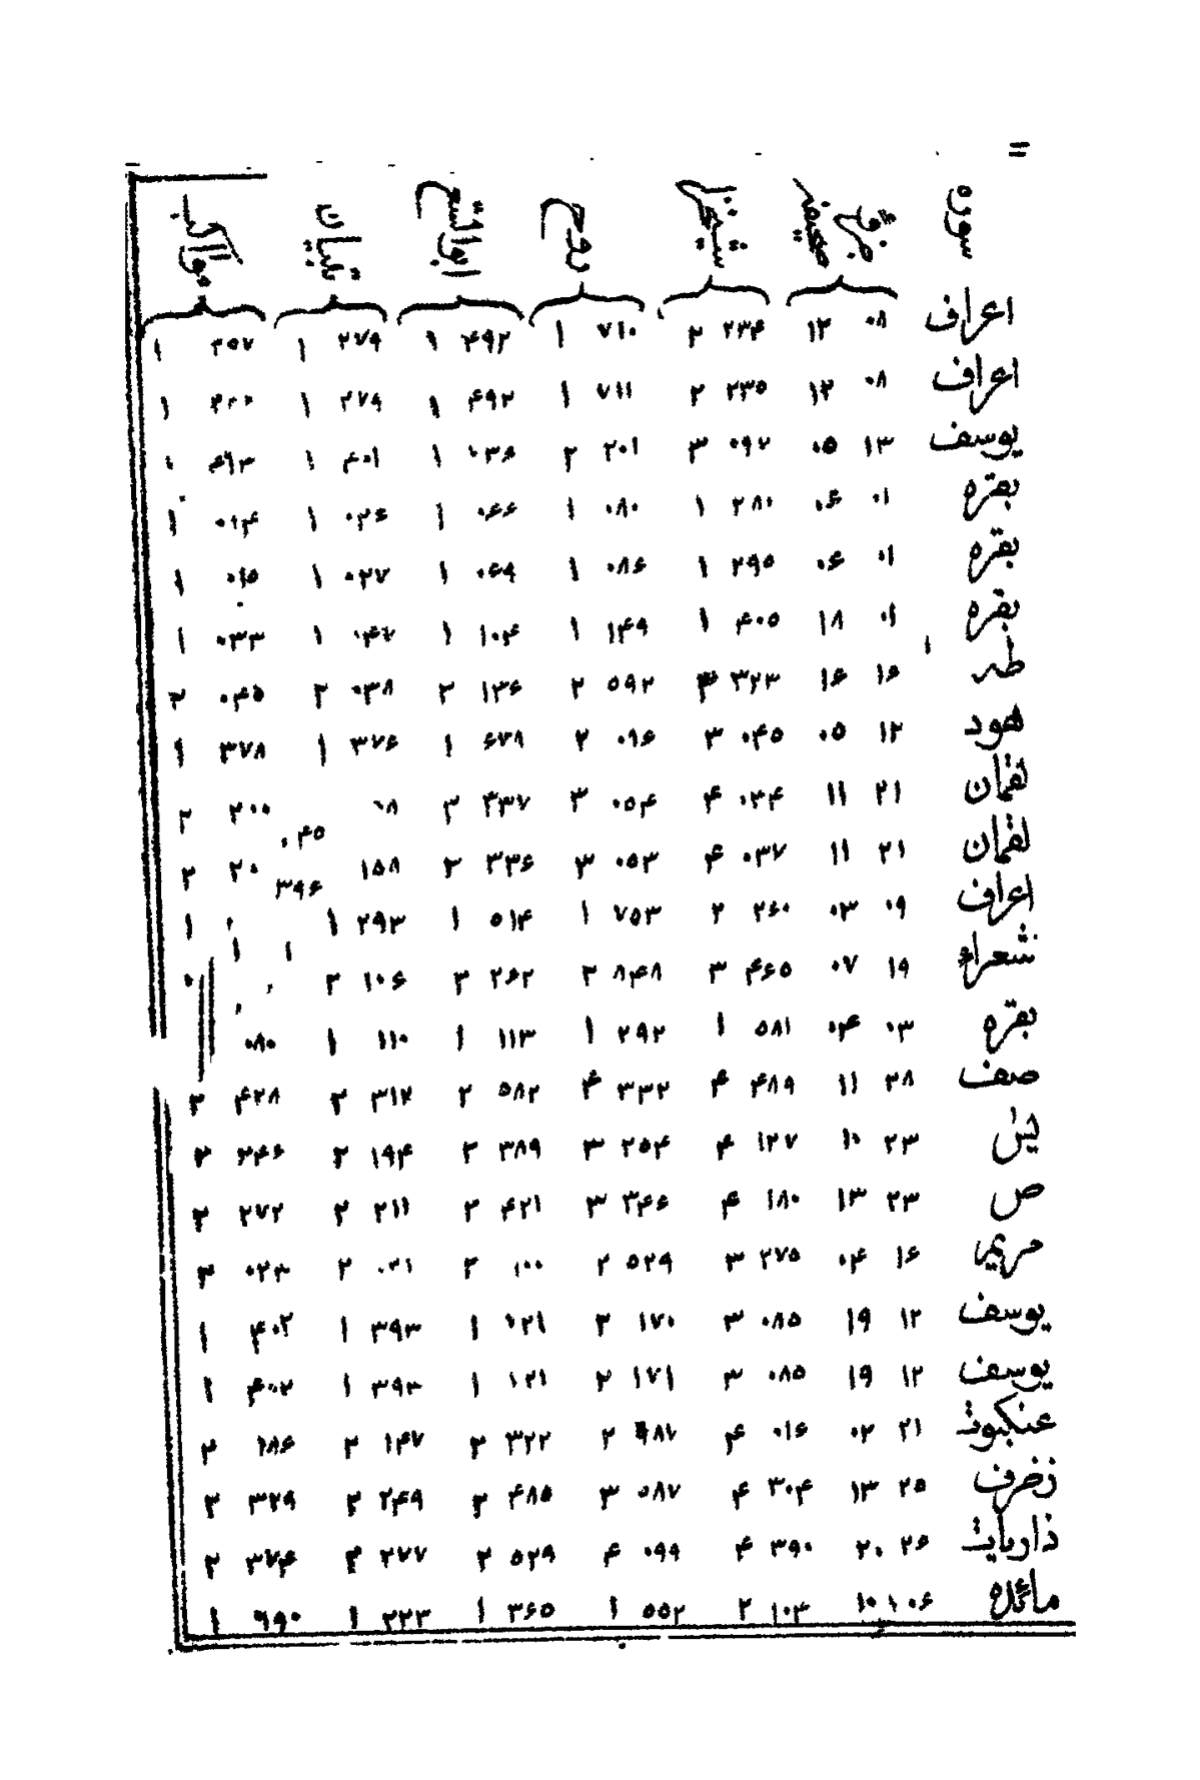 =
سوره جزء صحیفه شیخزاده روح ابوالسعود تبیان مواکب
اعراف ۰۸ ۱۲ ۲۳۴ ۲ ۷۱۰ ۱ ۴۹۲ ۱ ۲۷۹ ۱ ۲۵۷ ۱
اعراف ۰۸ ۱۲ ۲۳۵ ۲ ۷۱۱ ۱ ۴۹۲ ۱ ۲۷۹ ۱ ۱
یوسف ۱۳ ۰۵ ۰۹۲ ۳ ۲۰۱ ۲ ۰۳۶ ۱ ۴۰۱ ۱ ۴۱۳ ۱
بقره ۰۱ ۰۶ ۲۸۰ ۱ ۰۸۰ ۱ ۰۶۶ ۱ ۰۲۶ ۱ ۰۱۴ ۱
بقره ۰۱ ۰۶ ۲۹۵ ۱ ۰۸۶ ۱ ۰۶۹ ۱ ۰۲۷ ۱ ۰۱۵ ۱
بقره ۰۱ ۱۸ ۴۰۵ ۱ ۱۴۹ ۱ ۱۰۴ ۱ ۰۴۲ ۱ ۰۳۳ ۱
طه ۱۶ ۱۶ ۳۲۳ ۳ ۵۹۲ ۲ ۱۳۶ ۲ ۰۳۸ ۲ ۰۴۵ ۲
هود ۱۲ ۰۵ ۰۴۵ ۳ ۰۹۶ ۲ ۶۷۹ ۱ ۳۷۶ ۱ ۳۷۸ ۱
لقمان ۲۱ ۱۱ ۰۳۴ ۴ ۰۵۴ ۳ ۳۳۷ ۲ ۰۸ ۲۰۰ ۲
۰۴۵
لقمان ۲۱ ۱۱ ۰۳۷ ۴ ۰۵۳ ۳ ۳۳۶ ۲ ۱۵۸ ۲۰ ۲
۳۹۶
اعراف ۰۹ ۰۳ ۲۶۰ ۲ ۷۵۳ ۱ ۵۱۴ ۱ ۲۹۳ ۱ ۱
۱ ۱
شعراء ۱۹ ۰۷ ۴۶۵ ۳ ۸۴۸ ۲ ۲۶۲ ۲ ۱۰۶ ۲
بقره ۰۳ ۰۴ ۵۸۱ ۱ ۲۹۲ ۱ ۱۱۳ ۱ ۱۱۰ ۱ ۰۸۰
صف ۲۸ ۱۱ ۴۸۹ ۴ ۳۳۲ ۴ ۵۸۲ ۲ ۳۱۲ ۲ ۴۲۸ ۲
یس ۲۳ ۱۰ ۱۲۷ ۴ ۲۵۴ ۳ ۳۸۹ ۲ ۱۹۴ ۲ ۲۴۶ ۲
ص ۲۳ ۱۳ ۱۸۰ ۴ ۳۴۶ ۳ ۴۲۱ ۲ ۲۱۱ ۲ ۲۷۲ ۲
مریم ۱۶ ۰۴ ۲۷۵ ۳ ۵۲۹ ۲ ۱۰۰ ۲ ۰۲۱ ۲ ۰۲۳ ۲
یوسف ۱۲ ۱۹ ۰۸۵ ۳ ۱۷۰ ۲ ۰۲۱ ۱ ۳۹۳ ۱ ۴۰۲ ۱
یوسف ۱۲ ۱۹ ۰۸۵ ۳ ۱۷۱ ۲ ۱۲۱ ۱ ۳۹۳ ۱ ۴۰۲ ۱
عنکبوت ۲۱ ۰۲ ۰۱۶ ۴ ۹۸۲ ۲ ۳۲۲ ۲ ۱۴۷ ۲ ۱۸۶ ۲
زخرف ۲۵ ۱۳ ۳۰۴ ۴ ۵۸۷ ۳ ۴۸۵ ۲ ۲۴۹ ۲ ۳۲۹ ۲
ذاریات ۲۶ ۲۰ ۳۹۰ ۴ ۰۹۹ ۴ ۵۲۹ ۲ ۲۷۷ ۲ ۳۷۴ ۲
مائده ۰۶ ۱۰ ۱۰۳ ۲ ۵۵۲ ۱ ۳۶۵ ۱ ۲۲۳ ۱ ۶۹۰ ۱